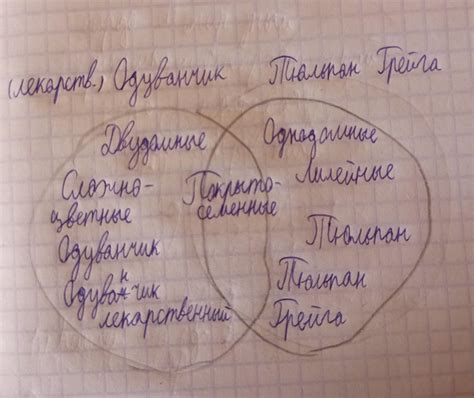 (лекарств.) Одуванчик
Тюльпан Грейга
Двудомные
Сложно-
цветные
Одуванчик
Одуванчик
н
лекарственный
Покрыто-
семенные
Однодомные
Лилейные
Тюльпан
Тюльпан
Грейга